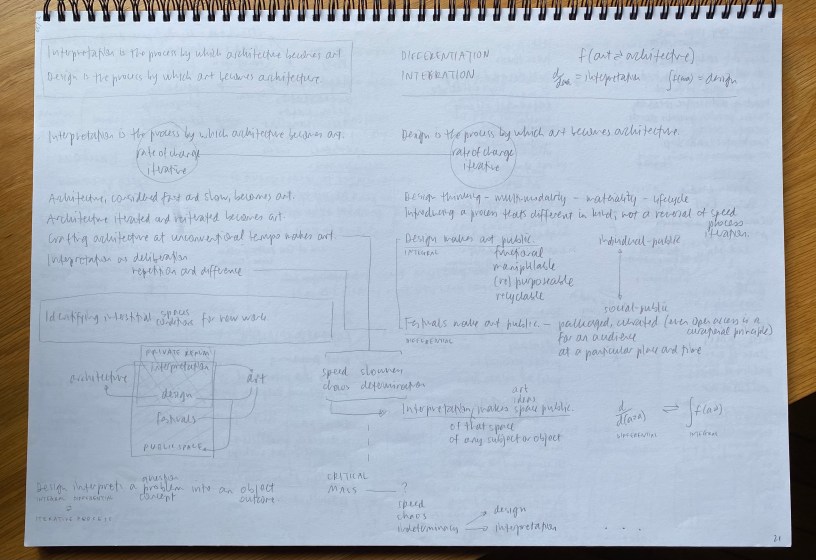 Interpretation is the process by which architecture becomes art
Design is the process by which art becomes architecture.
DIFFERENTIATION
INTEGRATION
f(art ⇌ architecture)
= interpretation
= design
Interpretation is the process by which architecture becomes art.
rate of change
iterative
Design is the process by which art becomes architecture.
rate of change
iterative
Architecture, considered fast and slow, becomes art.
Architecture iterated and reiterated becomes art.
Crafting architecture at unconventional tempo makes art.
Interpretation as deliberation
repetition and difference
Identifying interstitial spaces
conditions for new work
PRIVATE REALM
interpretation
architecture
art
design
festivals
PUBLIC SPACE
Design interprets a question
problem
concept
into an object
outcome.
INTEGRAL DIFFERENTIAL
=
ITERATIVE PROCESS
Design thinking – multi-modality – materiality – lifecycle
Introducing a process that's different in kind, not a reversal of speed
process
iteration.
Design makes art public.
INTEGRAL
functional
manipulable
(re)purposeable
recyclable
individual-public
social-public
Festivals make art public – packaged, curated (even open access is a
curatorial principle)
DIFFERENTIAL
for an audience
at a particular place and time
speed slowness
chaos determination
art
ideas
Interpretation makes space public.
of that space
of any subject or object
DIFFERENTIAL
INTEGRAL
CRITICAL
MASS ?
speed
chaos
indeterminacy
design
interpretation
. . . .
21